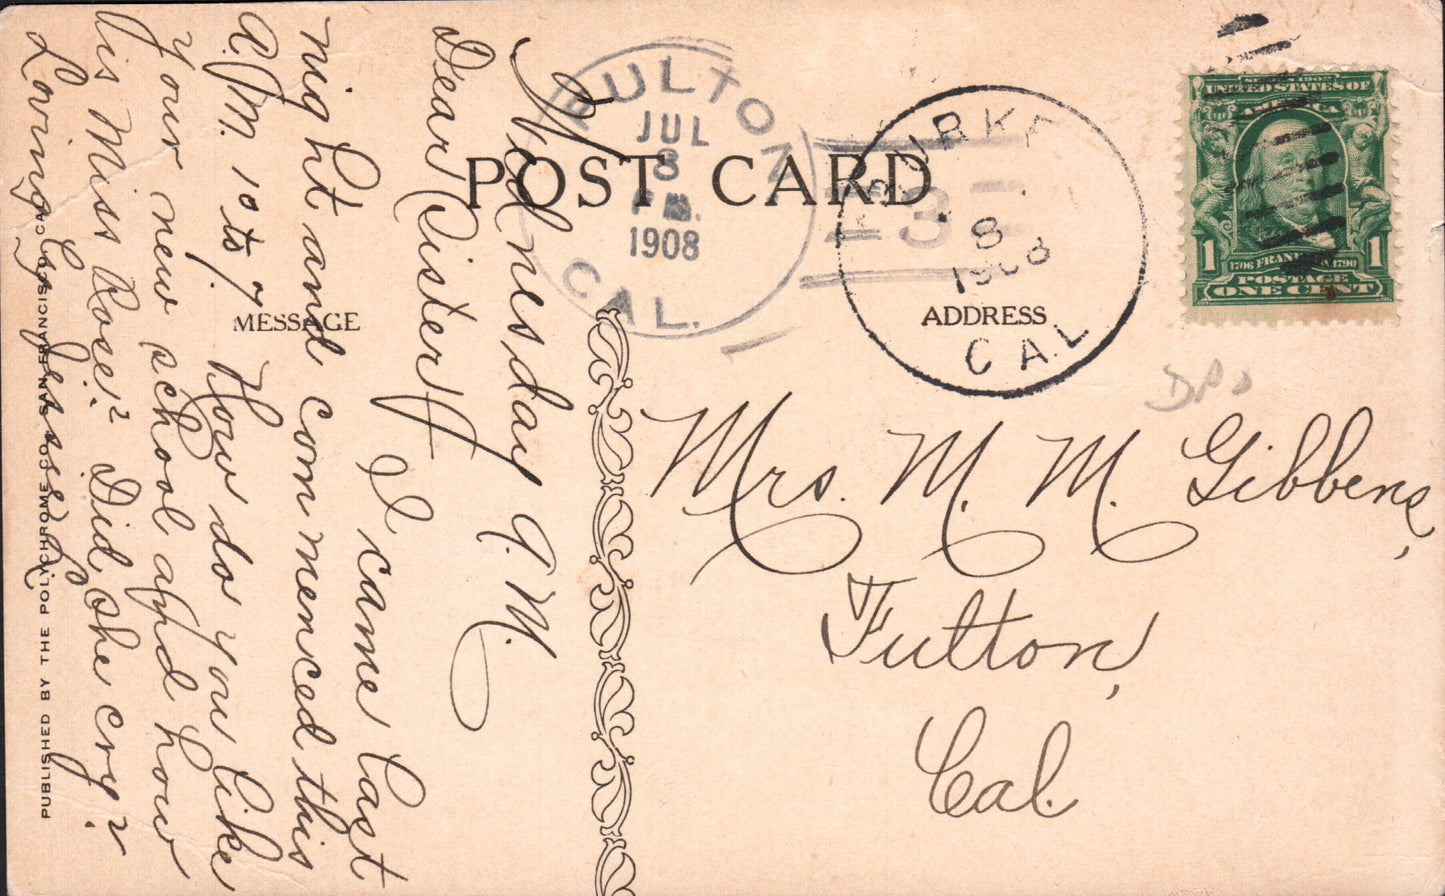 POST CARD
MESSAGE
ADDRESS
FULTON
JUL
8
P M.
1908
CAL.
3
BURKE
8
1908
CAL
SERIES 1902
UNITED STATES OF
AMERICA
1
1706 FRANKLIN 1790
1
POSTAGE
ONE CENT
DPO
Mrs. M. M. Gibbens,
Fulton,
Cal.
Wednesday 9. M.
Dear Sister:
I came last
night and commenced this
A.M. 10 to 7. How do you like
your new school and how
is Miss Rose? Did she cry?
Lovingly
PUBLISHED BY THE POLYCHROME CO. SAN FRANCISCO, CAL.